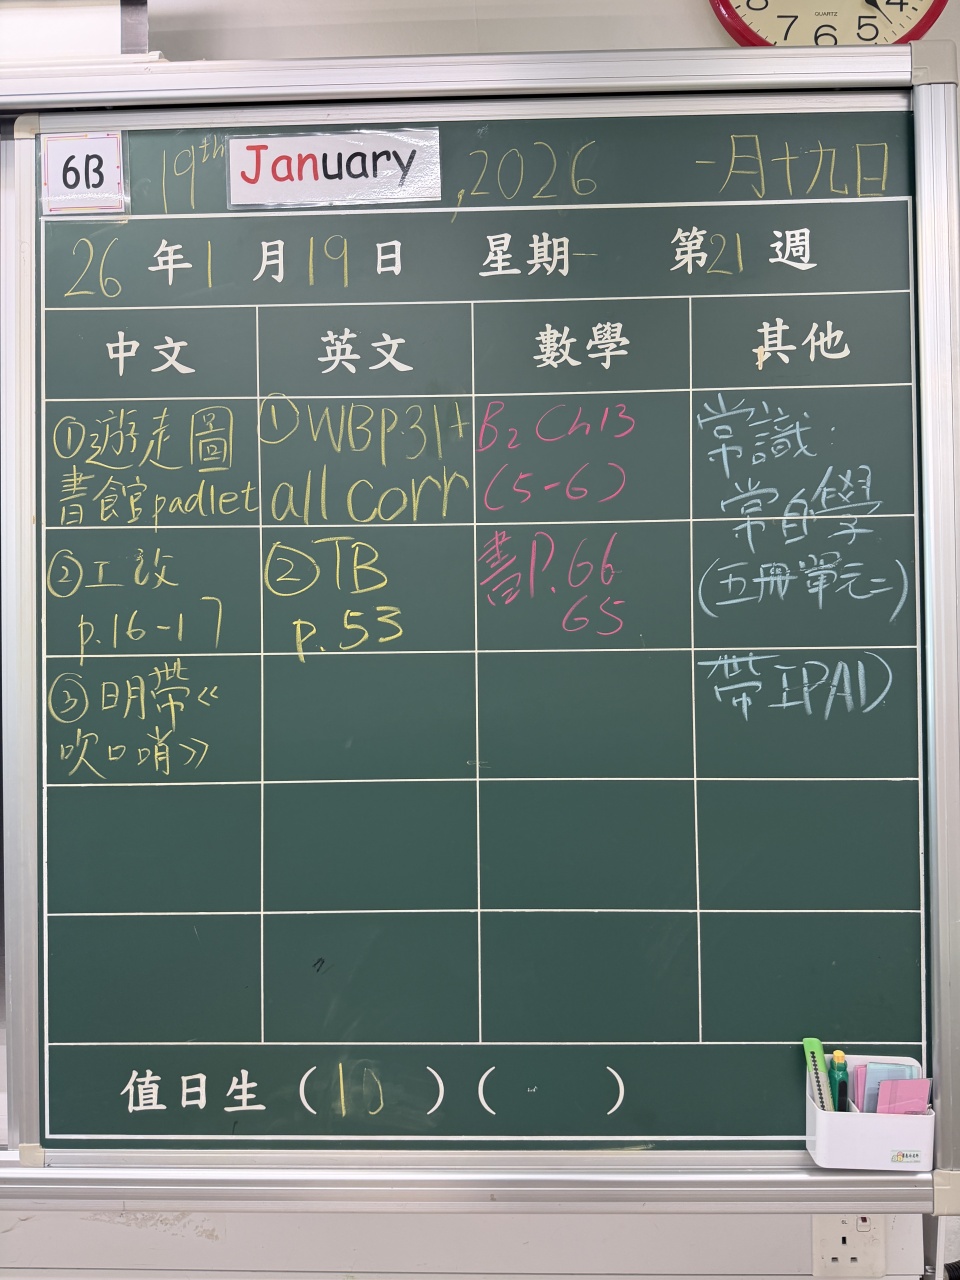 7 6 5 4
QUARTZ
6B 19th January ,2026 一月十九日
26年1月19日 星期一 第21週
中文 英文 數學 其他
①遊走圖
書館padlet
②工改
p.16-17
③明帶《
吹口哨》
①WBP.31+
all corr
②TB
p.53
B2 Ch13
(5-6)
書P.66
65
常識:
常自學
(五冊單元二)
帶IPAD
值日生(10)( )